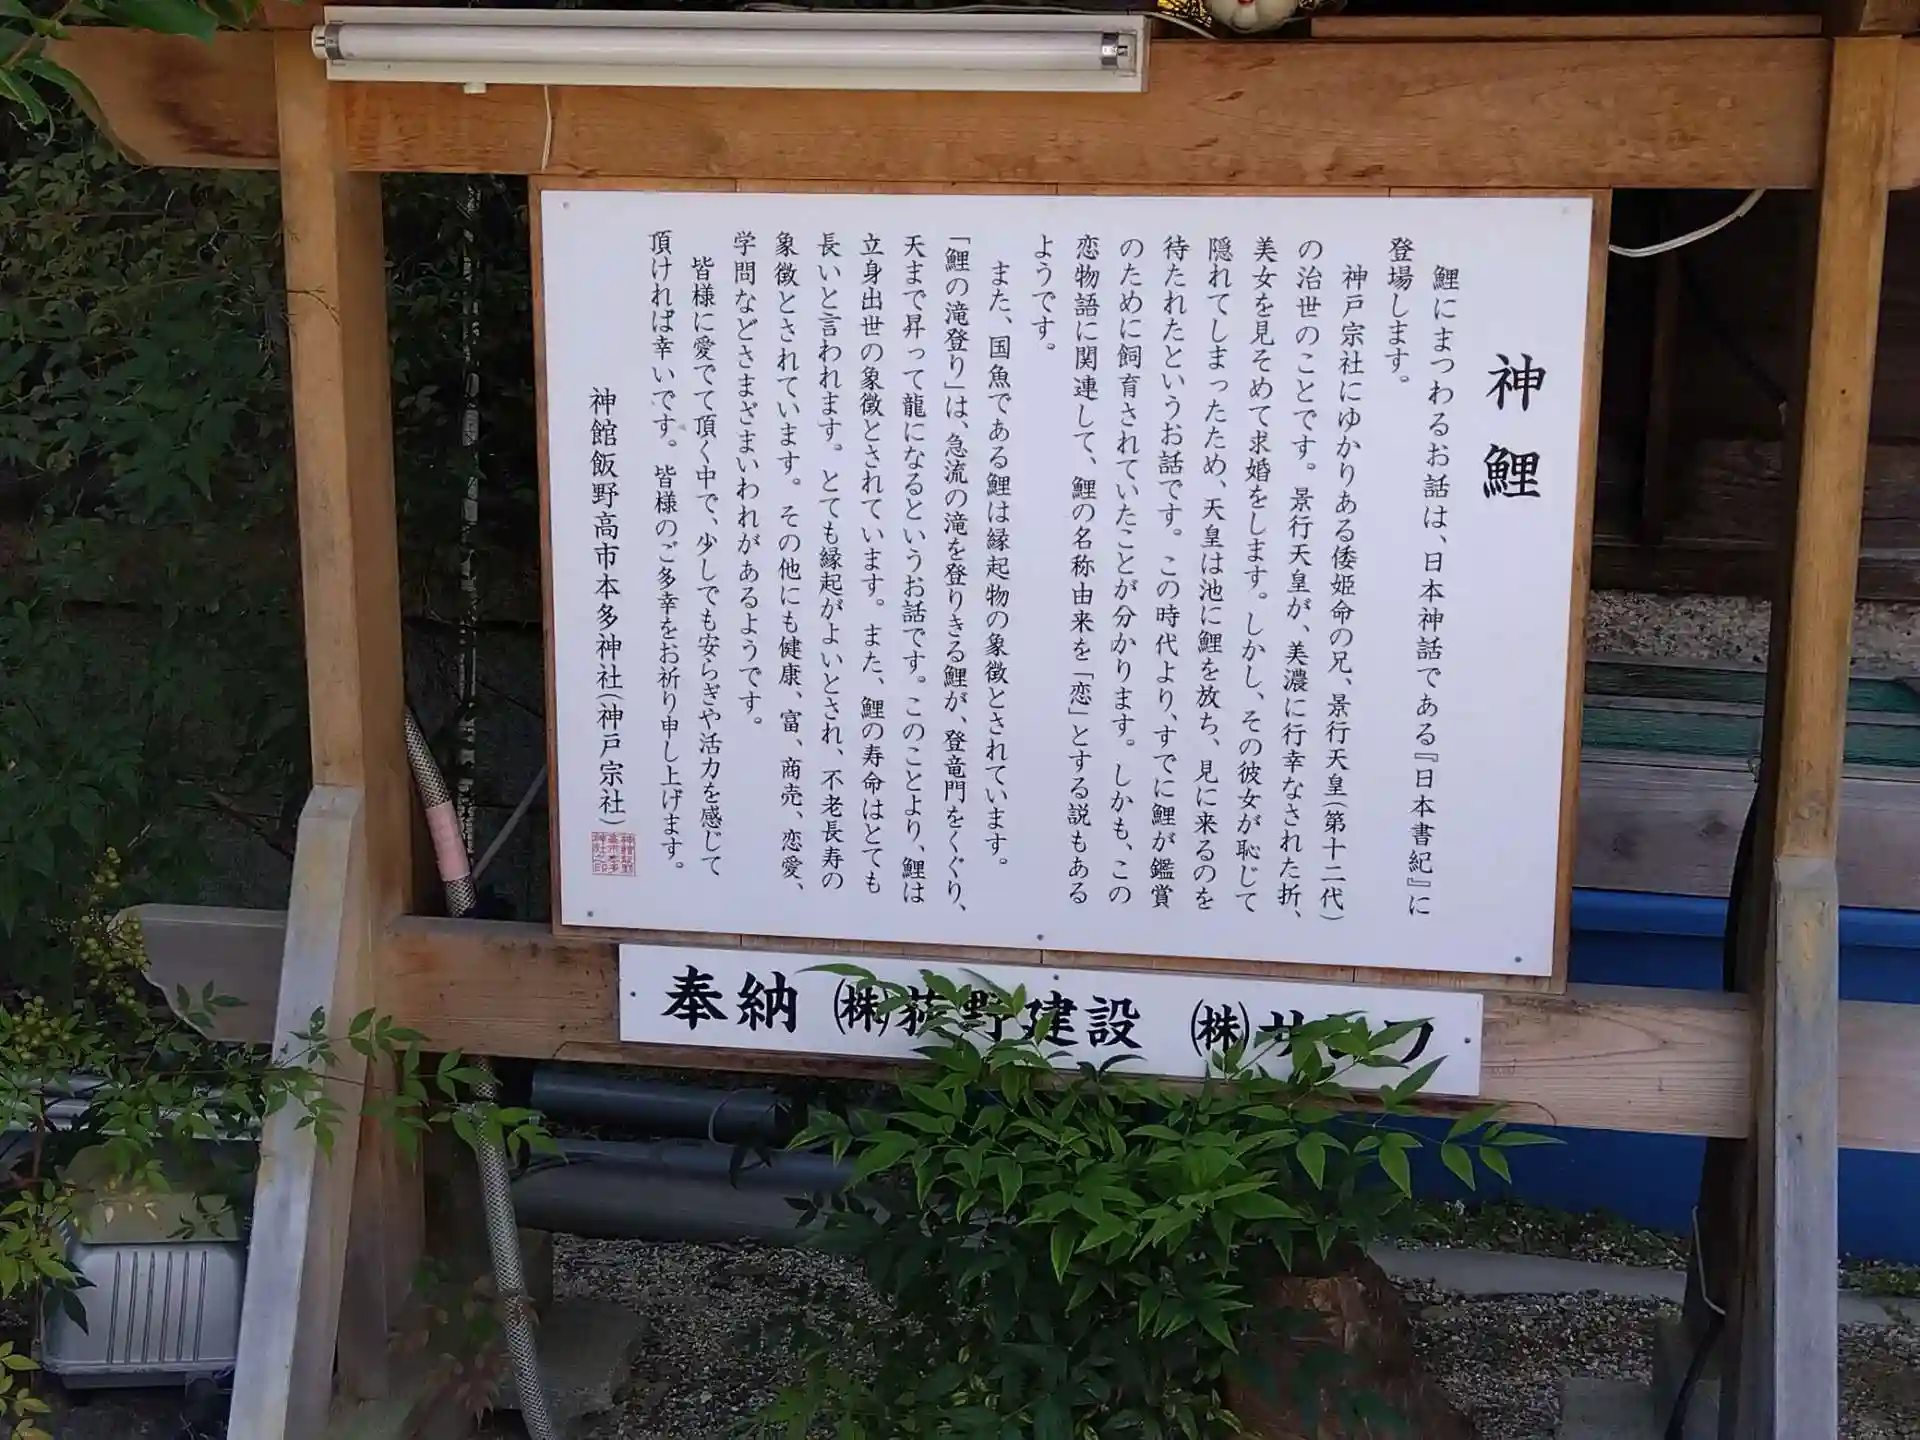 神鯉
鯉にまつわるお話は、日本神話である『日本書紀』に
登場します。
神戸宗社にゆかりある倭姫命の兄、景行天皇(第十二代)
の治世のことです。景行天皇が、美濃に行幸なされた折、
美女を見そめて求婚をします。しかし、その彼女が恥じて
隠れてしまったため、天皇は池に鯉を放ち、見に来るのを
待たれたというお話です。この時代より、すでに鯉が鑑賞
のために飼育されていたことが分かります。しかも、この
恋物語に関連して、鯉の名称由来を「恋」とする説もある
ようです。
また、国魚である鯉は縁起物の象徴とされています。
「鯉の滝登り」は、急流の滝を登りきる鯉が、登竜門をくぐり、
天まで昇って龍になるというお話です。このことより、鯉は
立身出世の象徴とされています。また、鯉の寿命はとても
長いと言われます。とても縁起がよいとされ、不老長寿の
象徴とされています。その他にも健康、富、商売、恋愛、
学問などさまざまいわれがあるようです。
皆様に愛でて頂く中で、少しでも安らぎや活力を感じて
頂ければ幸いです。皆様のご多幸をお祈り申し上げます。
神館飯野高市本多神社(神戸宗社)
奉納 ㈱荻野建設 ㈱サ